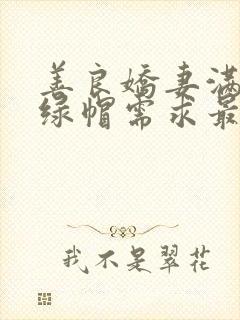 善良娇妻满
绿帽需求最
我不是翠花